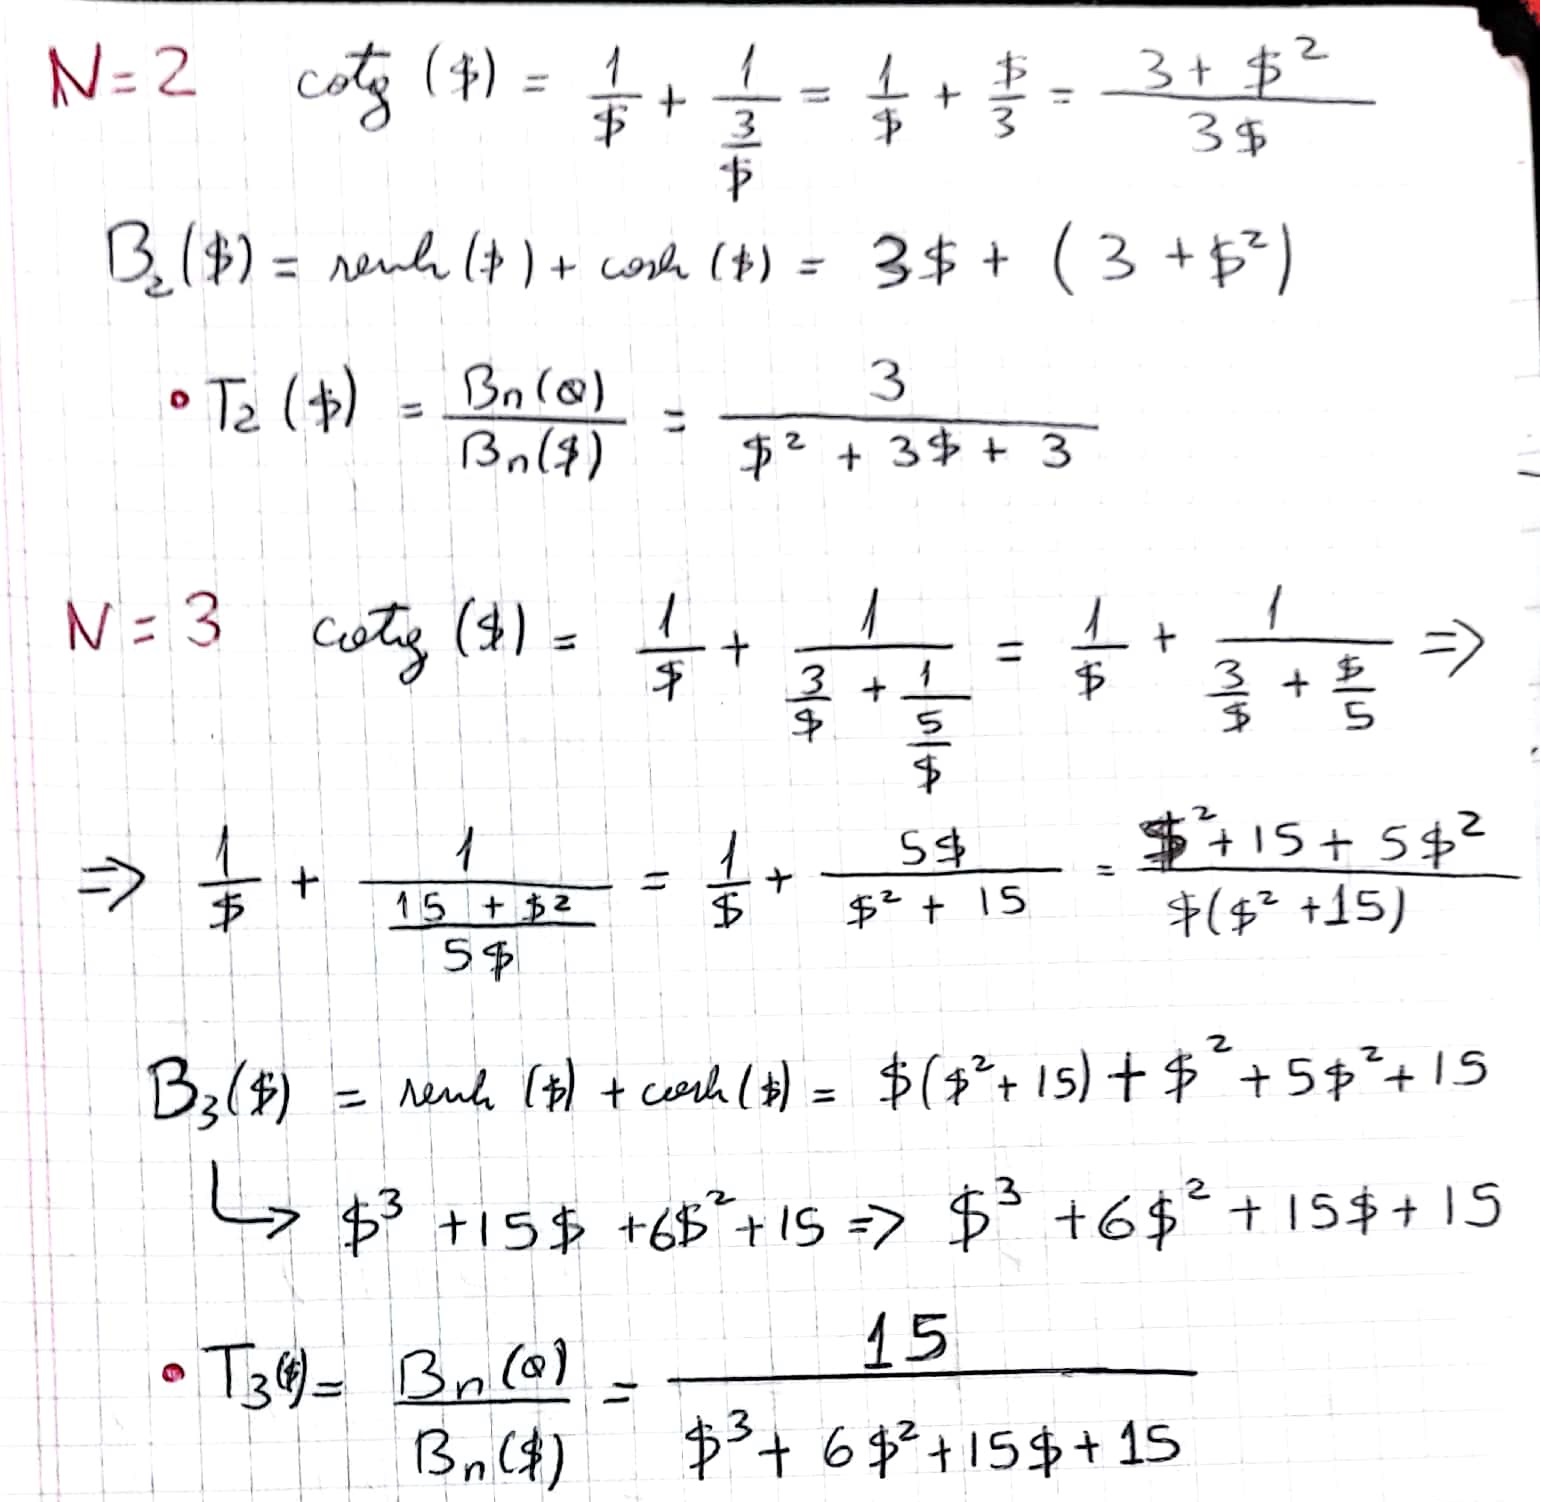 N=2 cotg ($) = 1/$ + 1/(3/$) = 1/$ + $/3 = (3+$²)/(3$)
B₂($) = senh($) + cosh($) = 3$ + (3+$²)
• T₂($) = Bn(0)/Bn($) = 3/($² + 3$ + 3)
N=3 cotg ($) = 1/$ + 1/(3/$ + 1/(5/$)) = 1/$ + 1/(3/$ + $/5) =>
=> 1/$ + 1/((15+$²)/(5$)) = 1/$ + 5$/($² + 15) = ($²+15+5$²)/($($²+15))
B₃($) = senh($) + cosh($) = $($²+15) + $² + 5$² + 15
↳ $³ + 15$ + 6$² + 15 => $³ + 6$² + 15$ + 15
• T₃($) = Bn(0)/Bn($) = 15/($³ + 6$² + 15$ + 15)